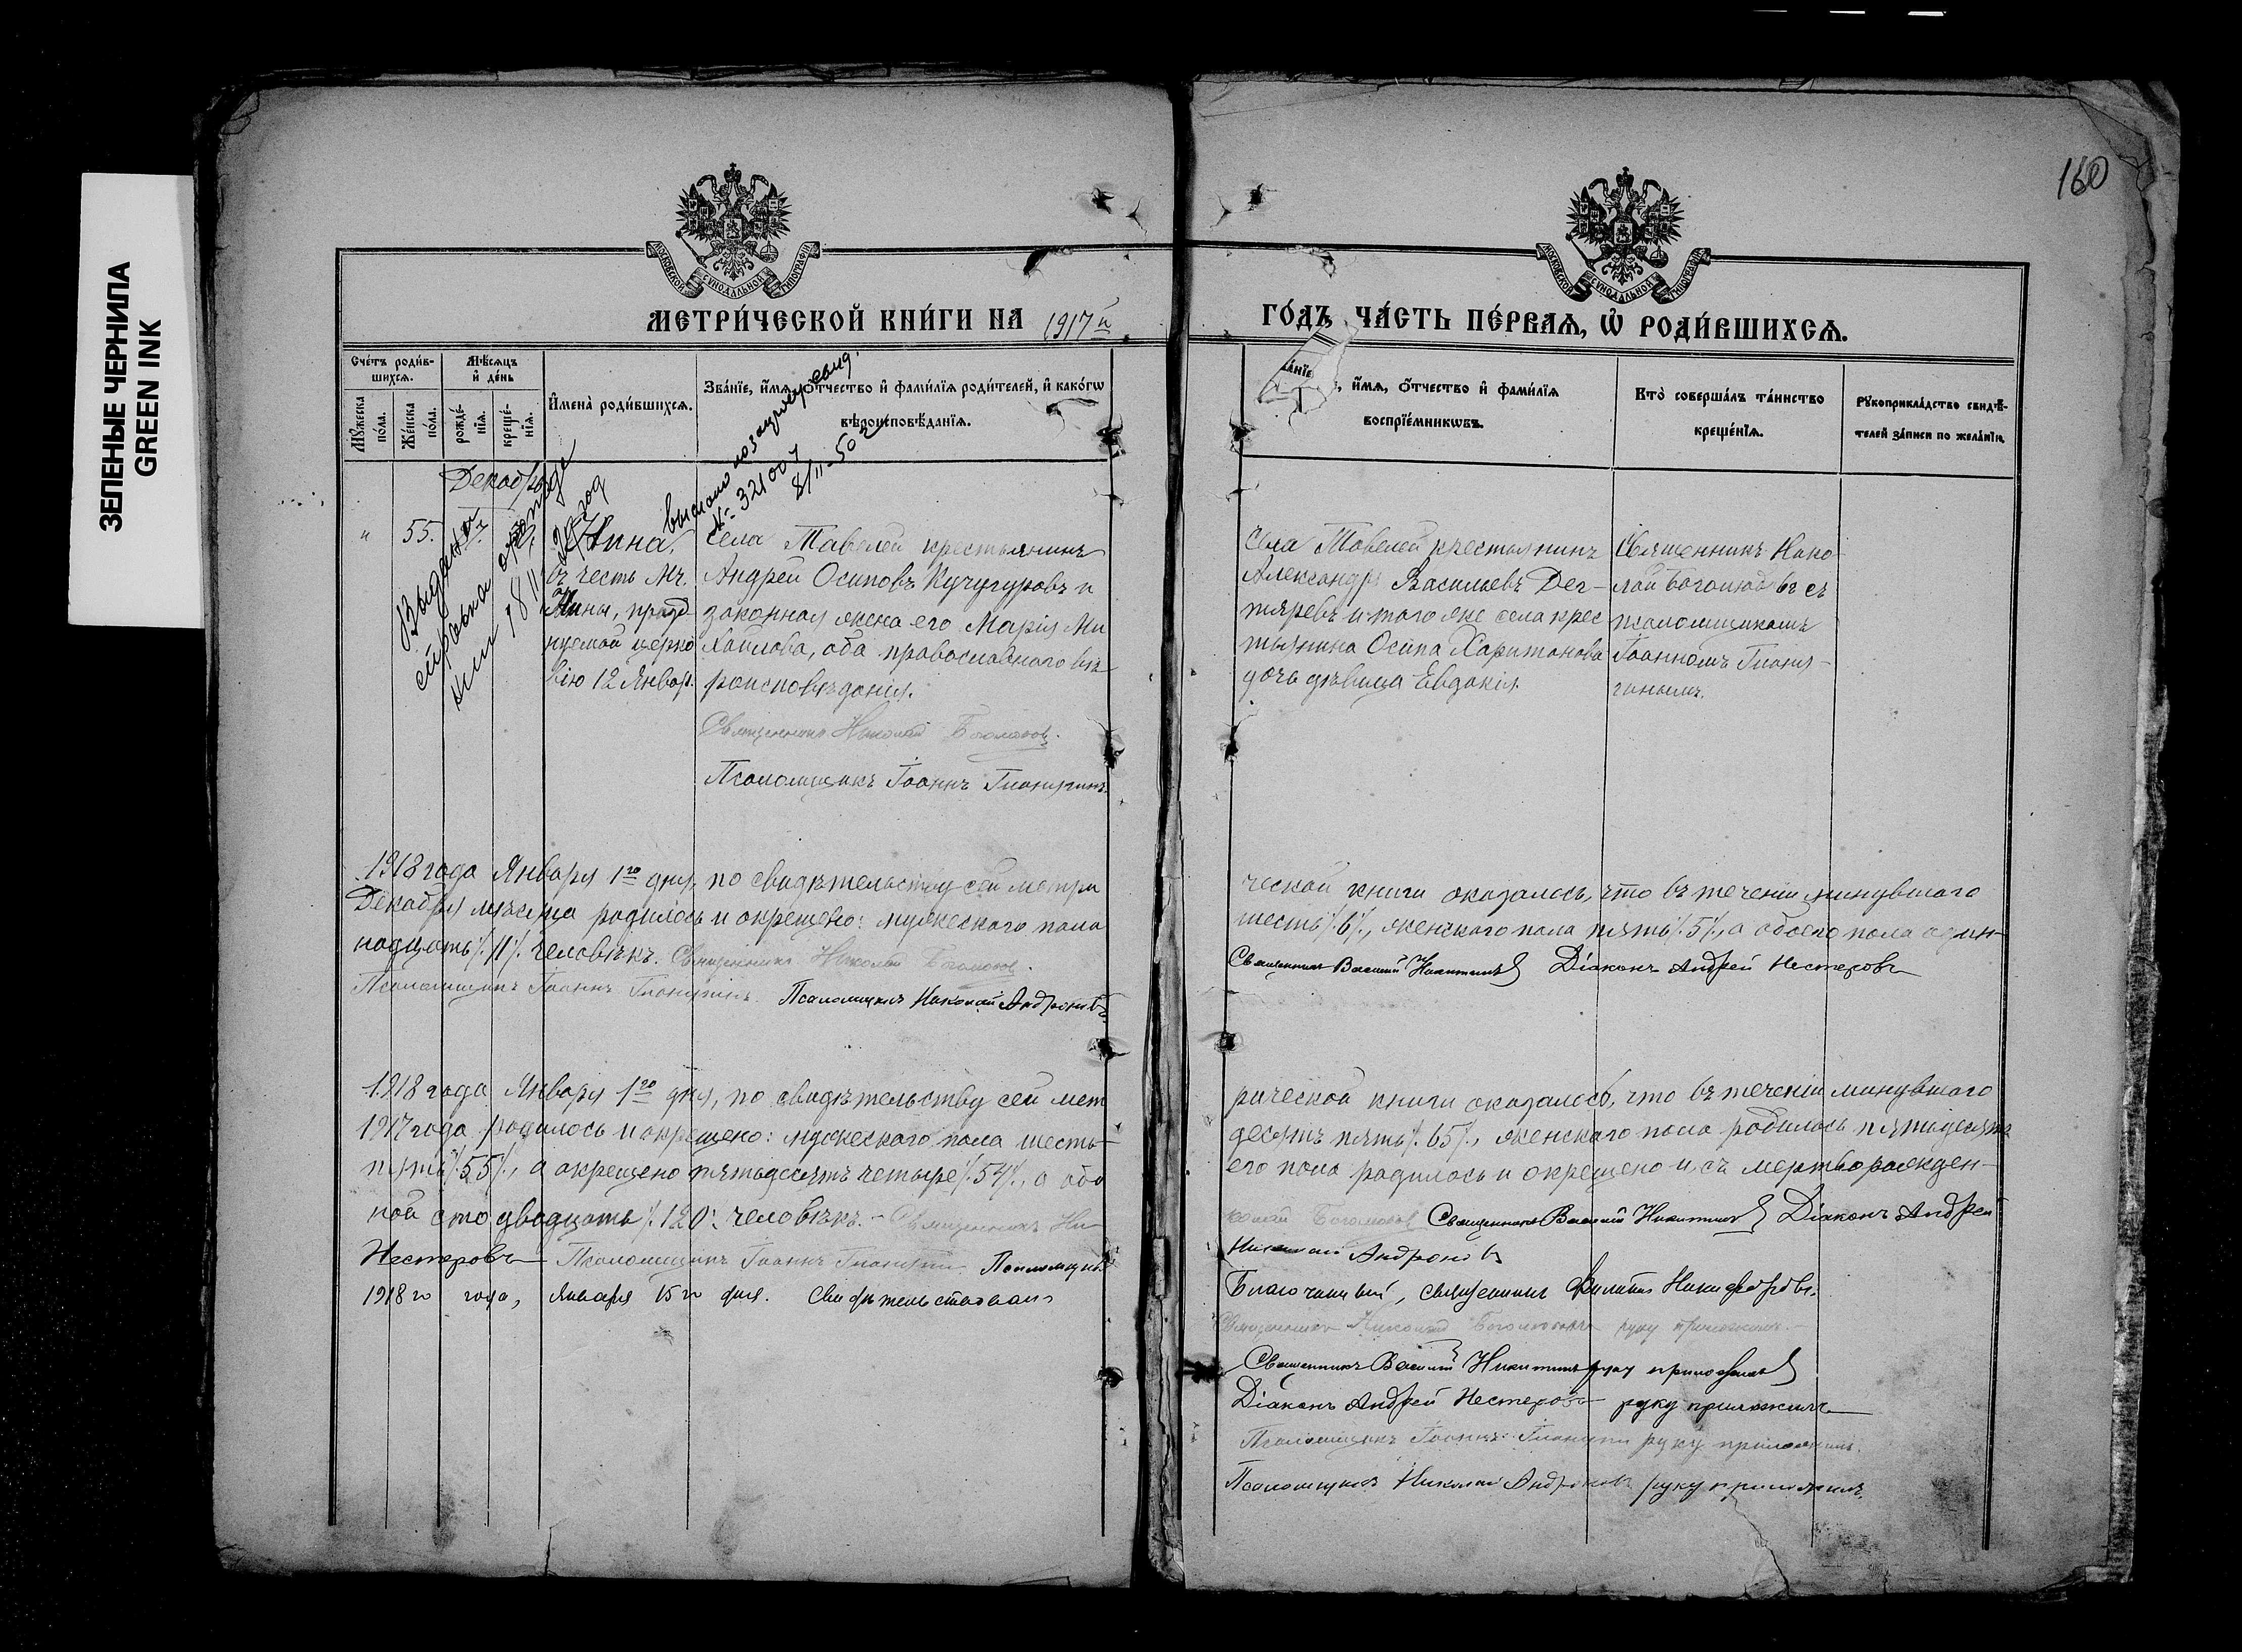 ЗЕЛЕНЫЕ ЧЕРНИЛА
GREEN INK
160
МОСКОВСКОЙ СѴНОДАЛЬНОЙ ТИПОГРАФІИ
МОСКОВСКОЙ СѴНОДАЛЬНОЙ ТИПОГРАФІИ
МЕТРИ́ЧЕСКОЙ КНИ́ГИ НА 1917й
ГО́ДЪ, ЧА́СТЬ ПЕ́РВАѦ, Ѡ҆ РОДИ́ВШИХСѦ.
Сче́тъ роди́в-
шихсѧ.
Мꙋ́жеска по́ла.
Же́нска по́ла.
Мѣ́сѧцъ и҆ де́нь
рожде́-
нїѧ.
креще́-
нїѧ.
И҆мена̀ роди́вшихсѧ.
Зва́нїе, и҆́мѧ, ѻ҆́тчество и҆ фами́лїѧ роди́телей, и҆ како́гѡ
вѣроисповѣ́данїѧ.
а́нїе, и҆́мѧ, ѻ҆́тчество и҆ фами́лїѧ
воспрїе́мникѡвъ.
Кто̀ соверша́лъ та́инство
креще́нїѧ.
Рꙋкоприкла́дство свидѣ́-
телей за́писи по жела́нїю.
выслано по запросу свид.
№ 321007
8/II-50 г
Выдана
справка
Декабрь
" 55.
Нина,
въ честь мч.
Нины, празд
нуемой церко
вію 12 Январ.
Села Тавелей крестьянинъ
Андрей Осиповъ Кучугуровъ и
законная жена его Марія Ми
хайлова, оба православнаго вѣ
роисповѣданія.
Священникъ Николай Боголюбовъ.
Псаломщикъ Іоаннъ
Села Тавелей крестьянинъ
Александръ Васильевъ Дег-
тяревъ и того же села крес
тьянина Осипа Харитонова
дочь дѣвица Евдокія.
Священникъ Нико-
лай Боголюбовъ съ
псаломщикомъ
Іоанномъ
1918 года Января 1го дня, по свидѣтельству сей метри
ческой книги оказалось, что въ теченіи минувшаго
Декабря мѣсяца родилось и окрещено: мужескаго пола
шесть /.6/., женскаго пола пять /.5/., а обоего пола один-
надцать /.11/. человѣкъ. Священникъ Николай Боголюбовъ.
Священникъ Василій Никитинъ Діаконъ Андрей Нестеровъ
Псаломщикъ Іоаннъ Псаломщикъ Николай Андроновъ
1918 года Января 1го дня, по свидѣтельству сей мет
рической книги оказалось, что въ теченіи минувшаго
1917 года родилось и окрещено: мужескаго пола шесть-
десятъ пять /.65/., женскаго пола родилось пятьдесятъ
пять /.55/., а окрещено пятьдесятъ четыре /.54/., а обо
его пола родилось и окрещено и съ мертворожден-
ной сто двадцать /.120/. человѣкъ. – Священникъ Ни-
колай Боголюбовъ Священникъ Василій Никитинъ Діаконъ Андрей
Нестеровъ Псаломщикъ Іоаннъ Псаломщикъ
Николай Андроновъ
1918 го года, Января 15 го дня. Свидѣтельствовалъ
Благочинный, священникъ Филиппъ Никифоровъ.
Священникъ Николай Боголюбовъ руку приложилъ.
Священникъ Василій Никитинъ руку приложилъ
Діаконъ Андрей Нестеровъ руку приложилъ
Псаломщикъ Іоаннъ руку приложилъ.
Псаломщикъ Николай Андроновъ руку приложилъ.